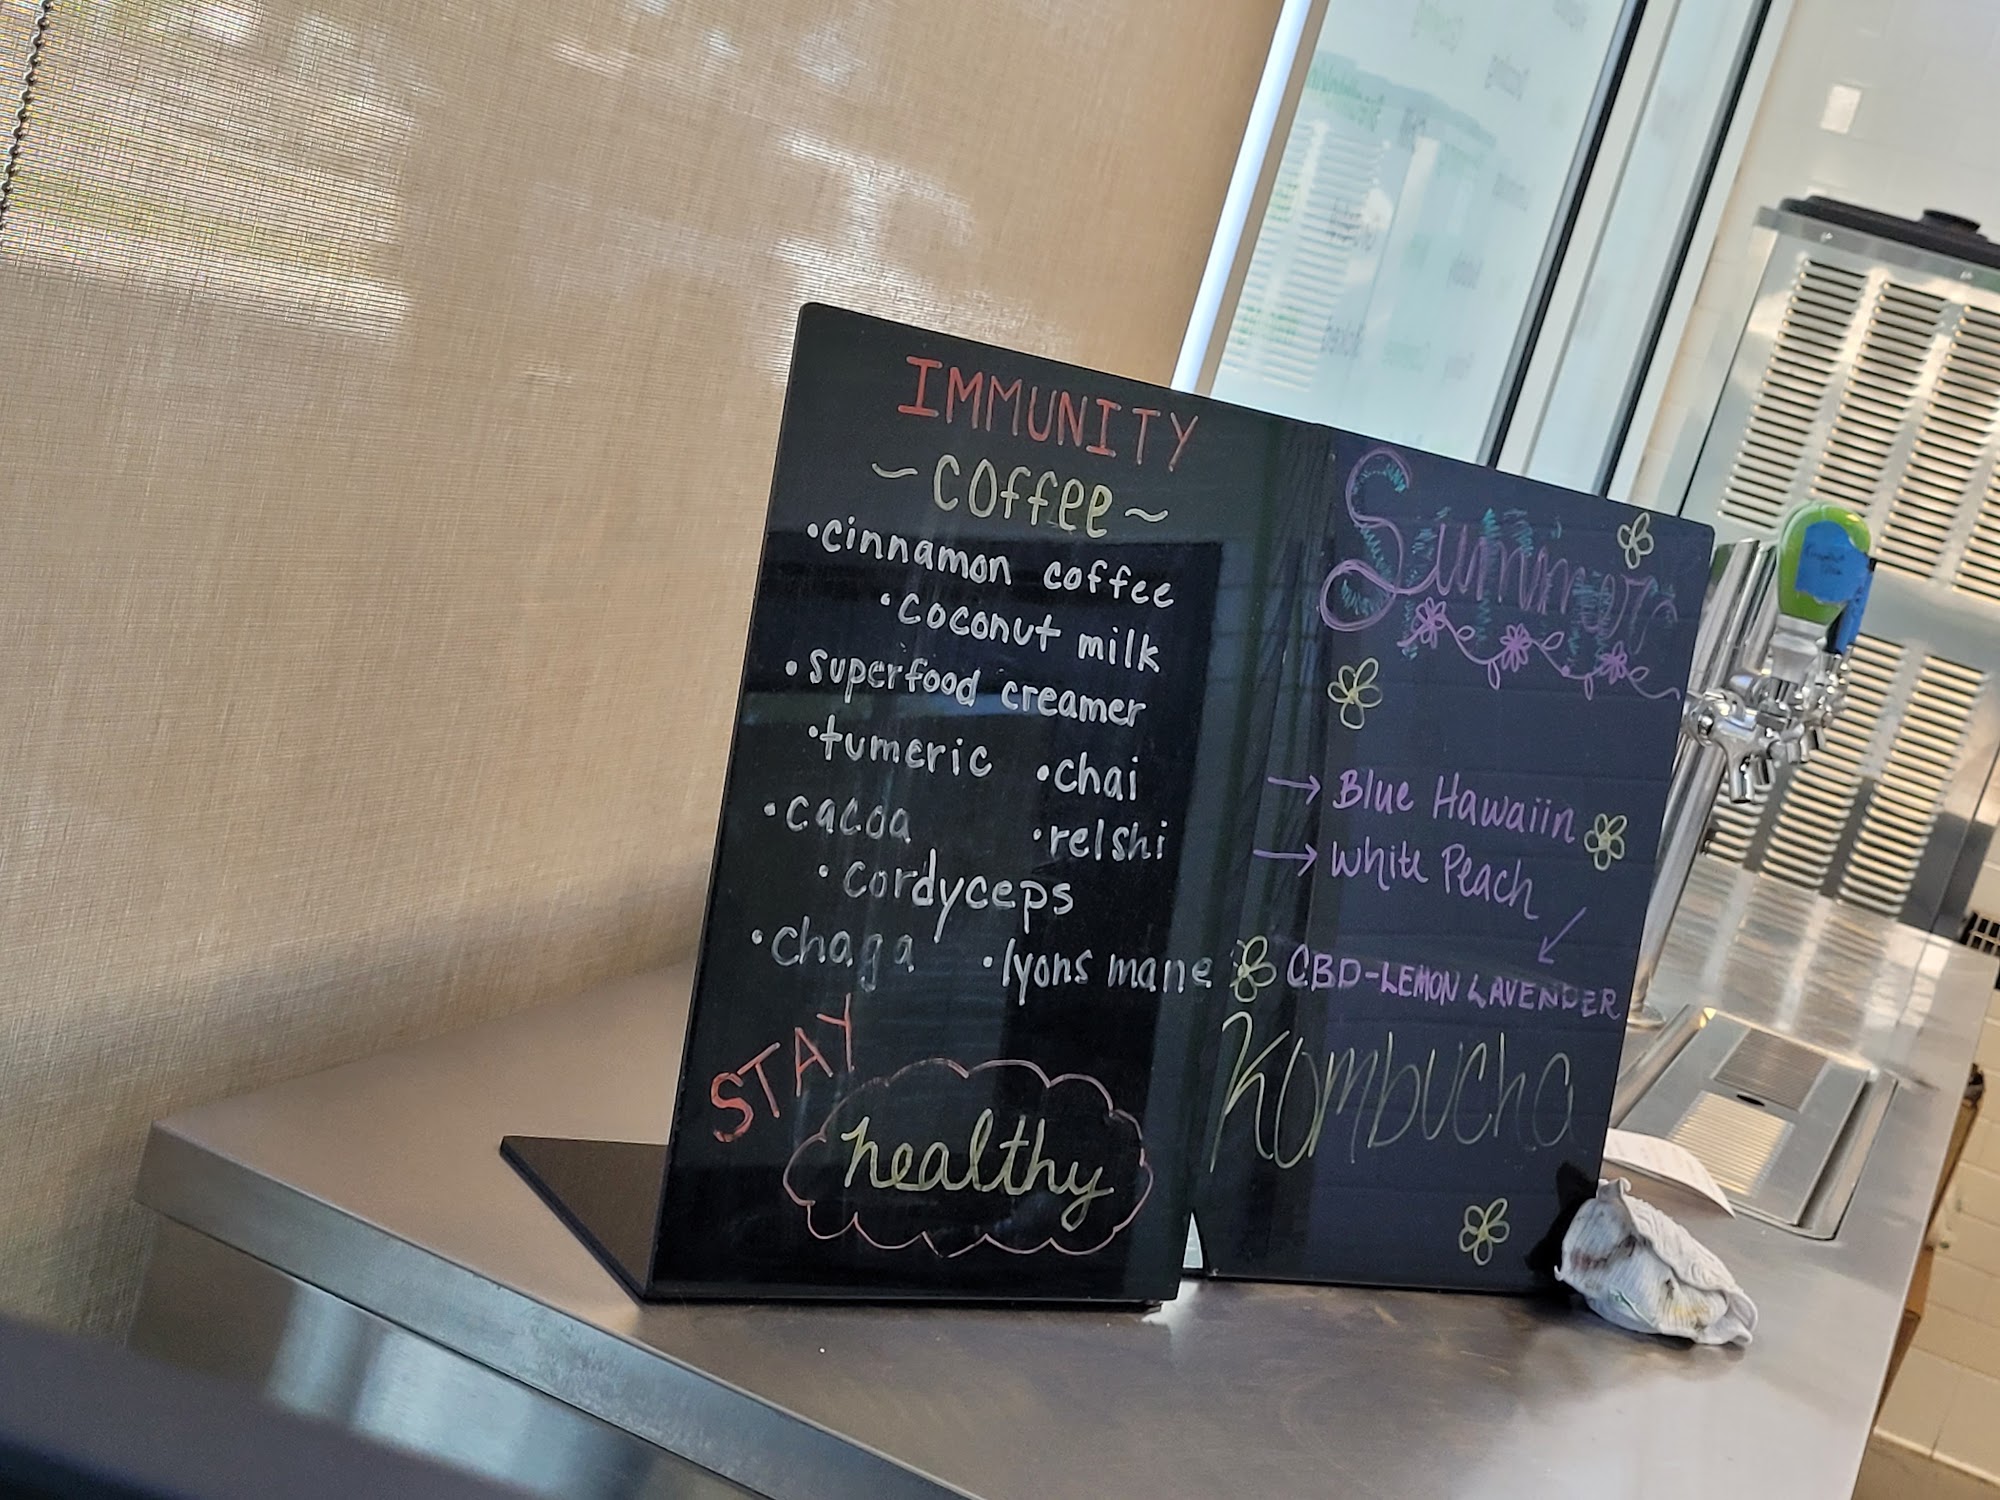 IMMUNITY
~COffee~
•cinnamon coffee
•coconut milk
•superfood creamer
•tumeric •chai
•cacoa •reIshi
•cordyceps
•chaga •lyons mane
STAY
healthy
Summer
→ Blue Hawaiin
→ White Peach
CBD-LEMON LAVENDER
Kombucha